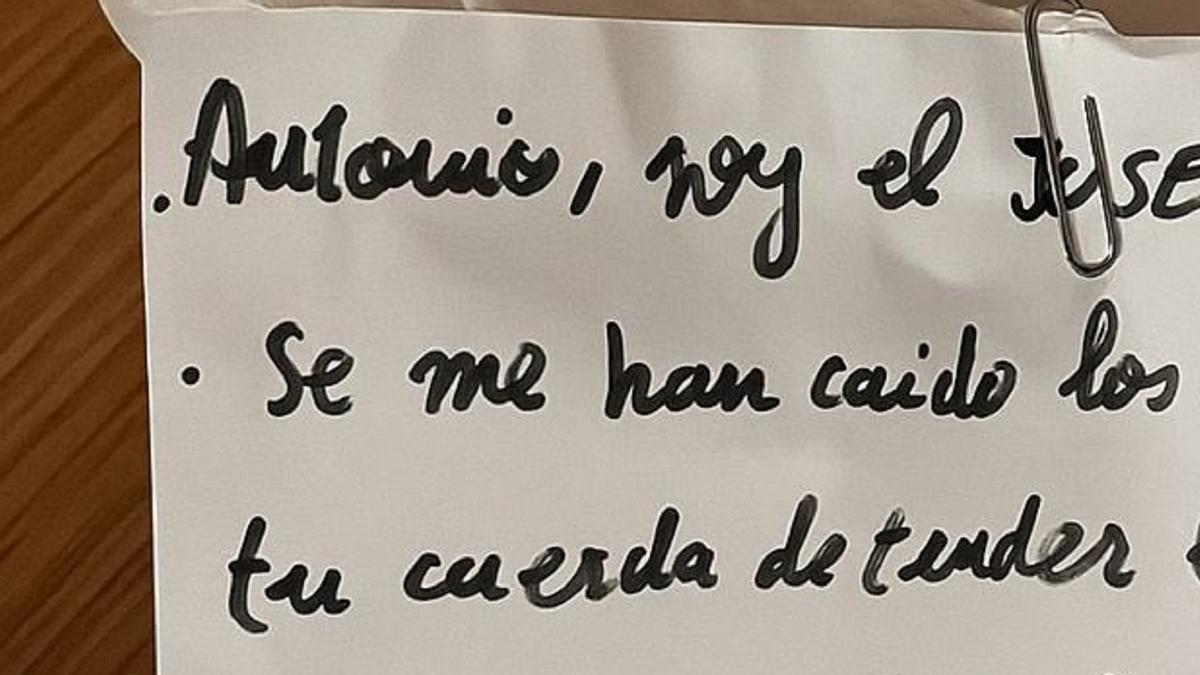 . Antonio, soy el
· Se me han caido los
tu cuerda de tender